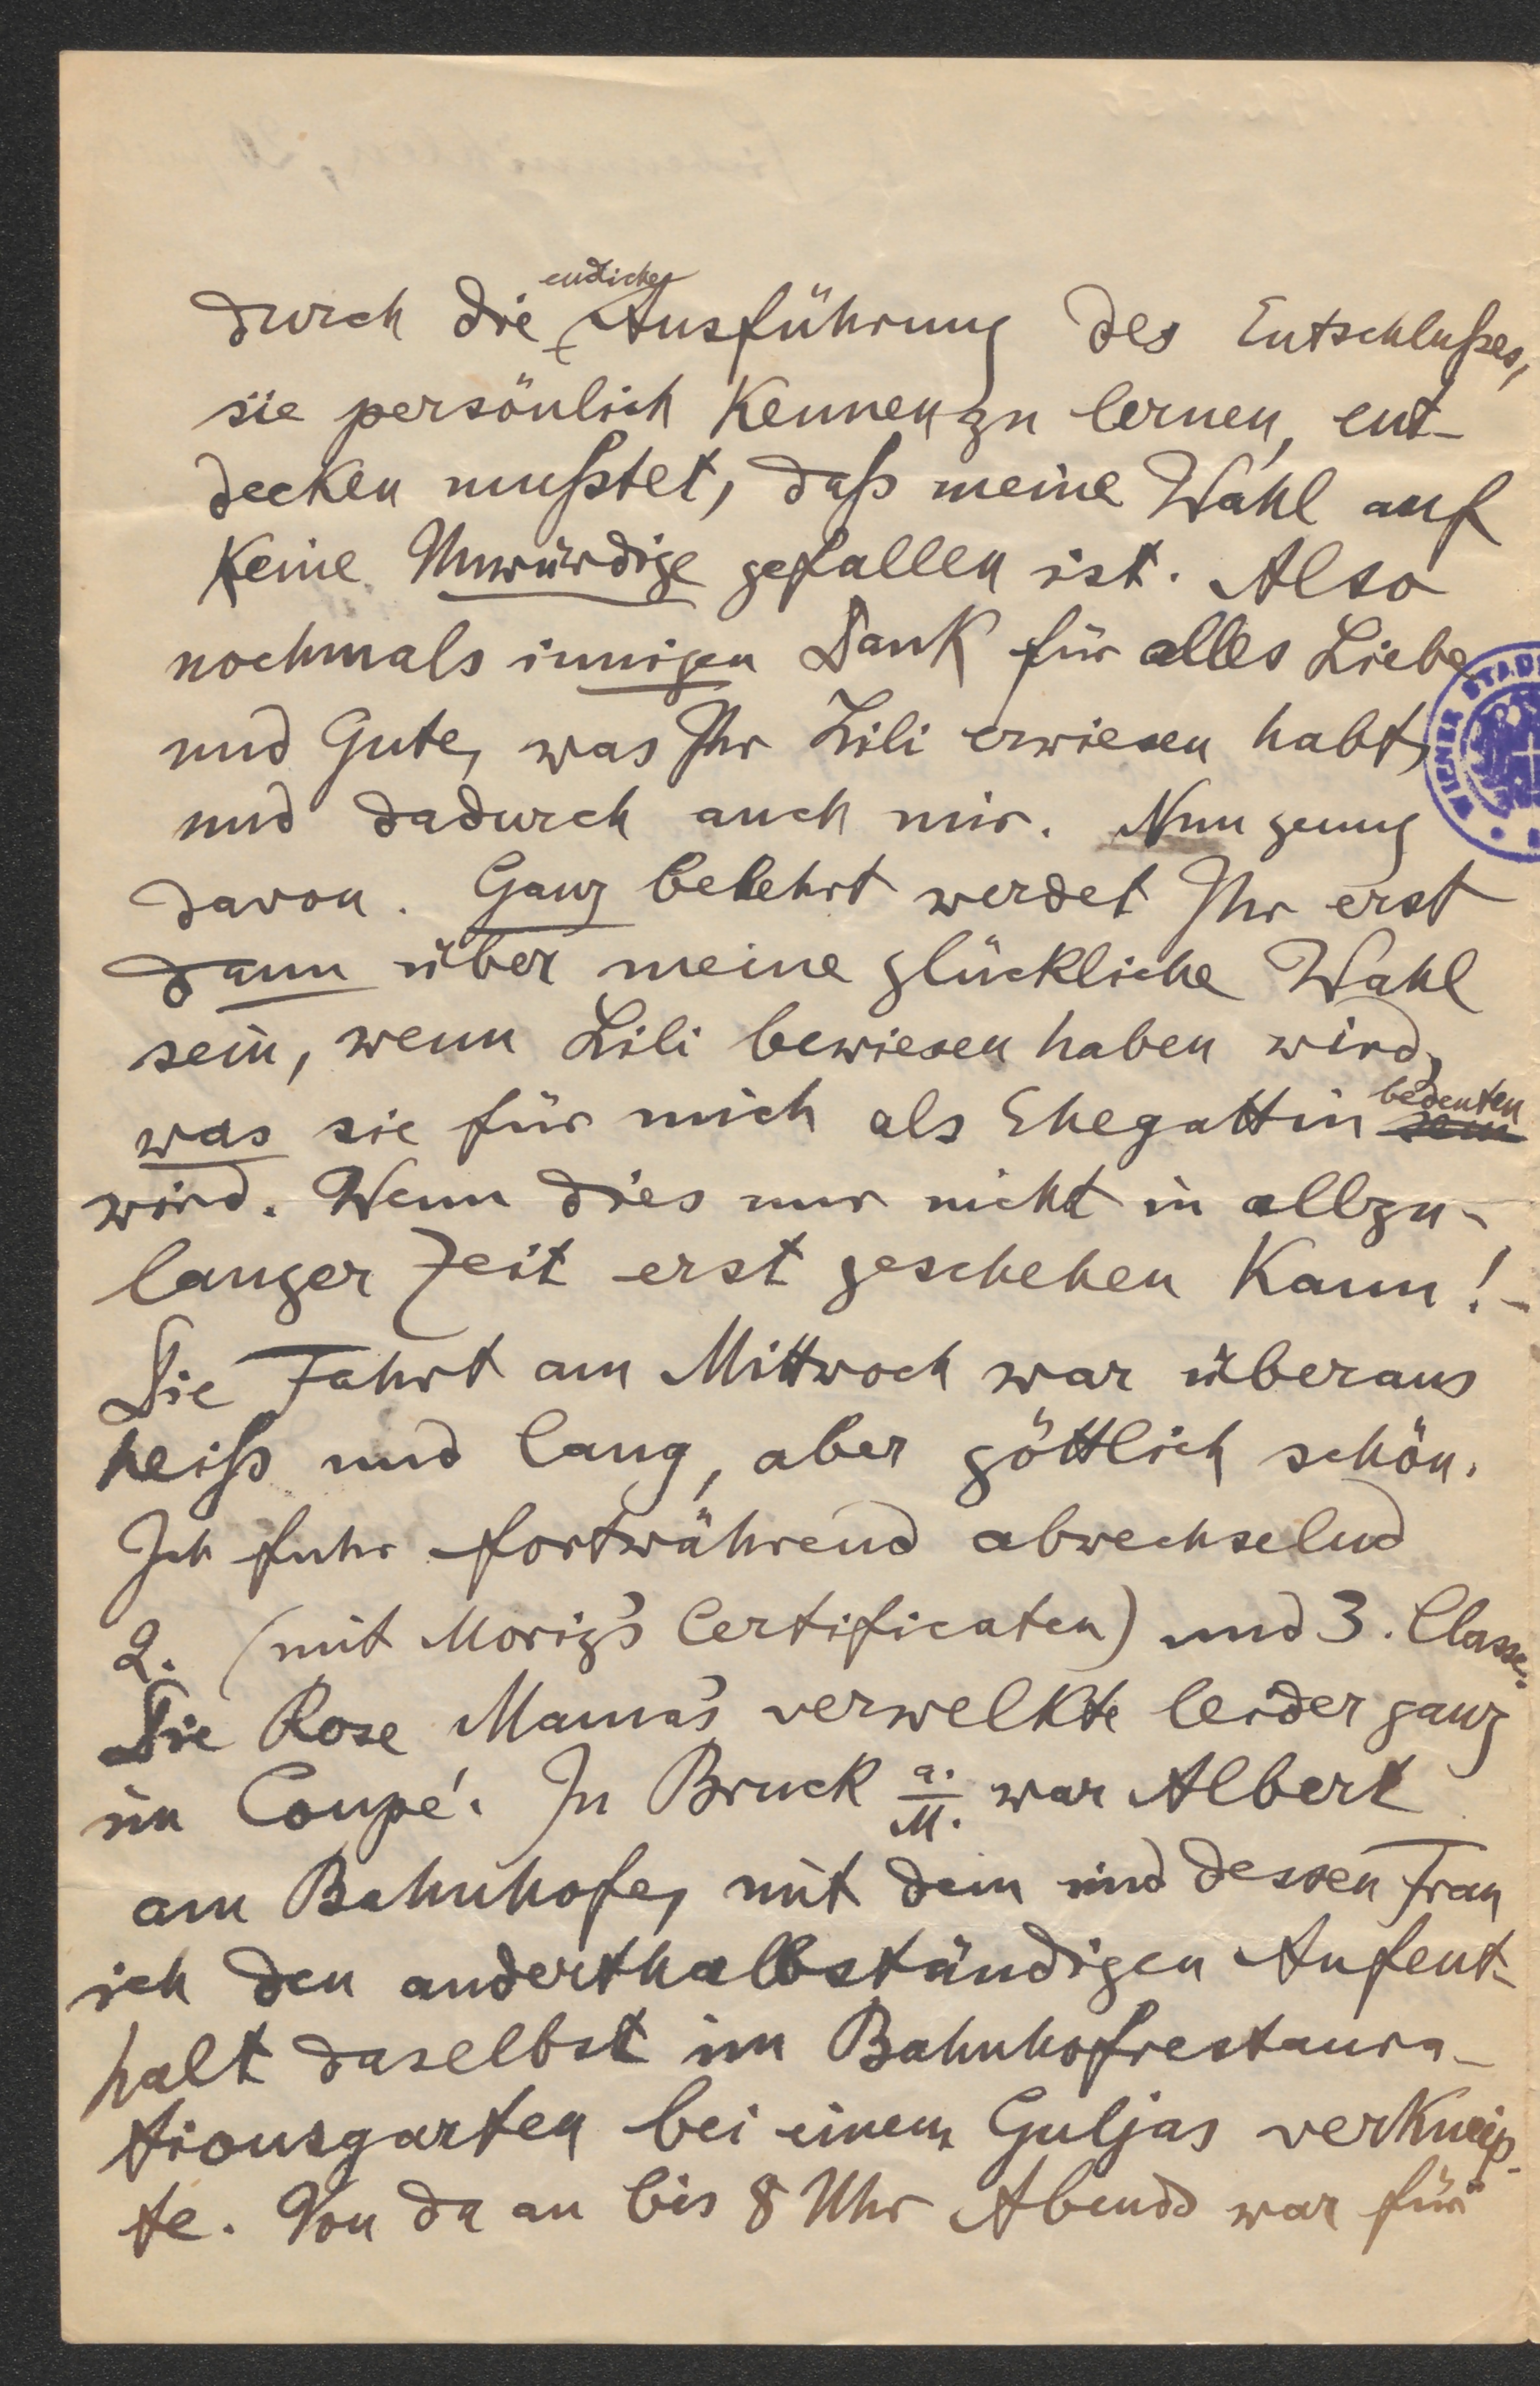 durch die endliche Ausführung des Entschlußes,
sie persönlich kennen zu lernen, ent-
decken mußtet, daß meine Wahl auf
keine Unwürdige gefallen ist. Also
nochmals innigen Dank für alles Liebe
und Gute, was Ihr Lili erwiesen habt,
und dadurch auch mir. Nun genug
davon. Ganz belehrt werdet Ihr erst
dann über meine glückliche Wahl
sein, wenn Lili bewiesen haben wird,
was sie für mich als Ehegattin sein bedeuten
wird. Wenn dies nur nicht in allzu-
langer Zeit erst geschehen kann! -
Die Fahrt am Mittwoch war überaus
heiß und lang, aber göttlich schön.
Ich fuhr fortwährend abwechselnd
2. (mit Moriz's Certificaten) und 3. Classe.
Die Rose Mama's verwelkte leider ganz
im Coupé. In Bruck a./M. war Albert
am Bahnhofe, mit dem und dessen Frau
ich den anderthalbständigen Aufent-
halt daselbst im Bahnhofrestaura-
tionsgarten bei einem Guljas verkneip-
te. Von da an bis 8 Uhr Abends war für
WIENER STAD